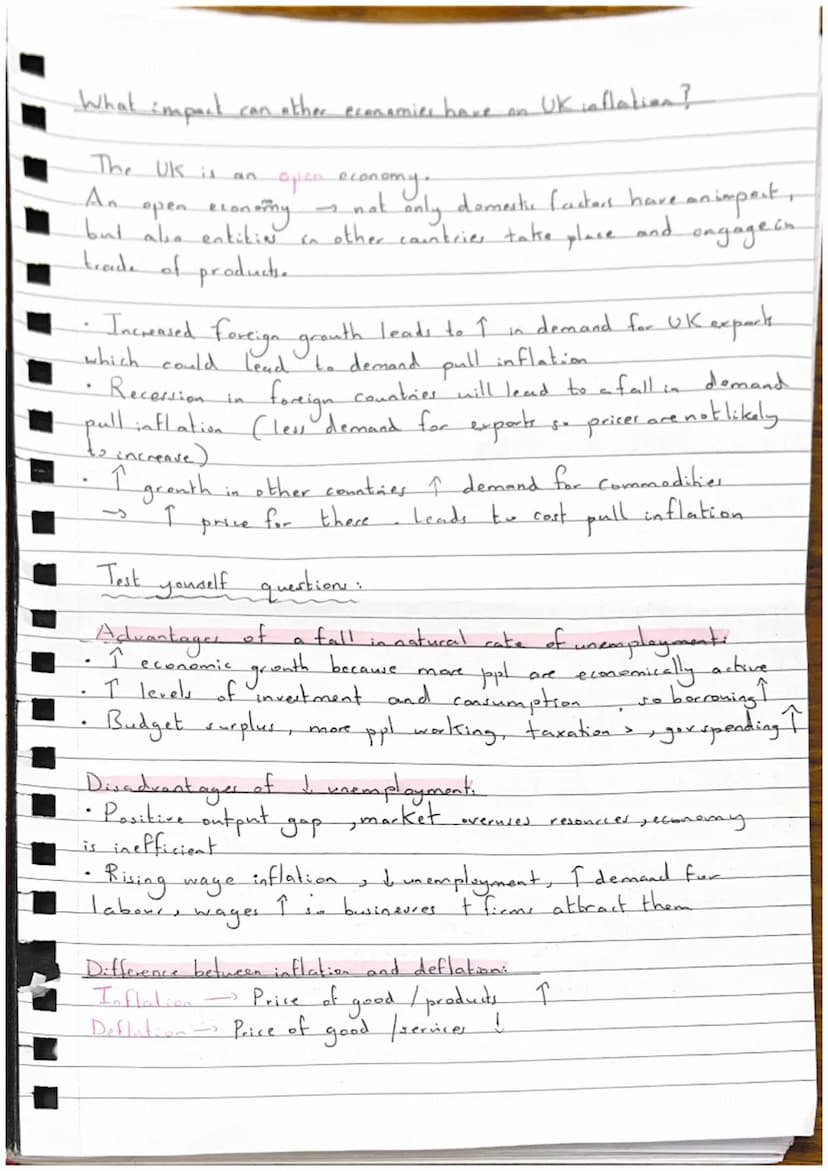 What impact can other economies have on UK inflation?
The UK is an open economy.
An open economy → not only domestic factors have an impact,
but also entities in other countries take place and engage in
trade of products.
· Increased foreign growth leads to ↑ in demand for UK exports
which could lead to demand pull inflation
· Recession in foreign countries will lead to a fall in demand
pull inflation (less demand for exports so prices are not likely
to increase)
· ↑ growth in other countries ↑ demand for commodities
→ ↑ price for these. Leads to cost pull inflation
Test yourself questions:
Advantages of a fall in natural rate of unemployment:
· ↑ economic growth because more ppl are economically active
· ↑ levels of investment and consumption, so borrowing ↑
· Budget surplus, more ppl working, taxation >, gov spending ↑
Disadvantages of ↓ unemployment:
· Positive output gap, market overuses resources, economy
is inefficient
· Rising wage inflation, ↓ unemployment, ↑ demand for
labour, wages ↑ so businesses + firms attract them
Difference between inflation and deflation:
Inflation → Price of good/products ↑
Deflation → Price of good/services ↓